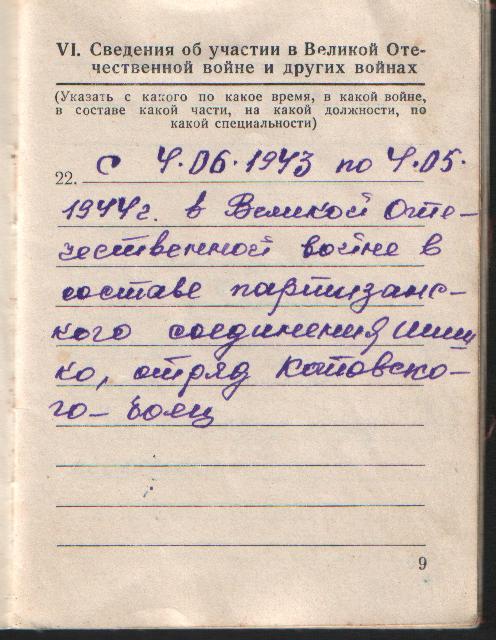 VI. Сведения об участии в Великой Оте-
чественной войне и других войнах
(Указать с какого по какое время, в какой войне,
в составе какой части, на какой должности, по
какой специальности)
22. С 4.06.1943 по 4.05.
1944г. в Великой Оте-
чественной войне в
составе партизанс-
кого соединения Шиш
ко, отряд Котовско-
го - боец
9